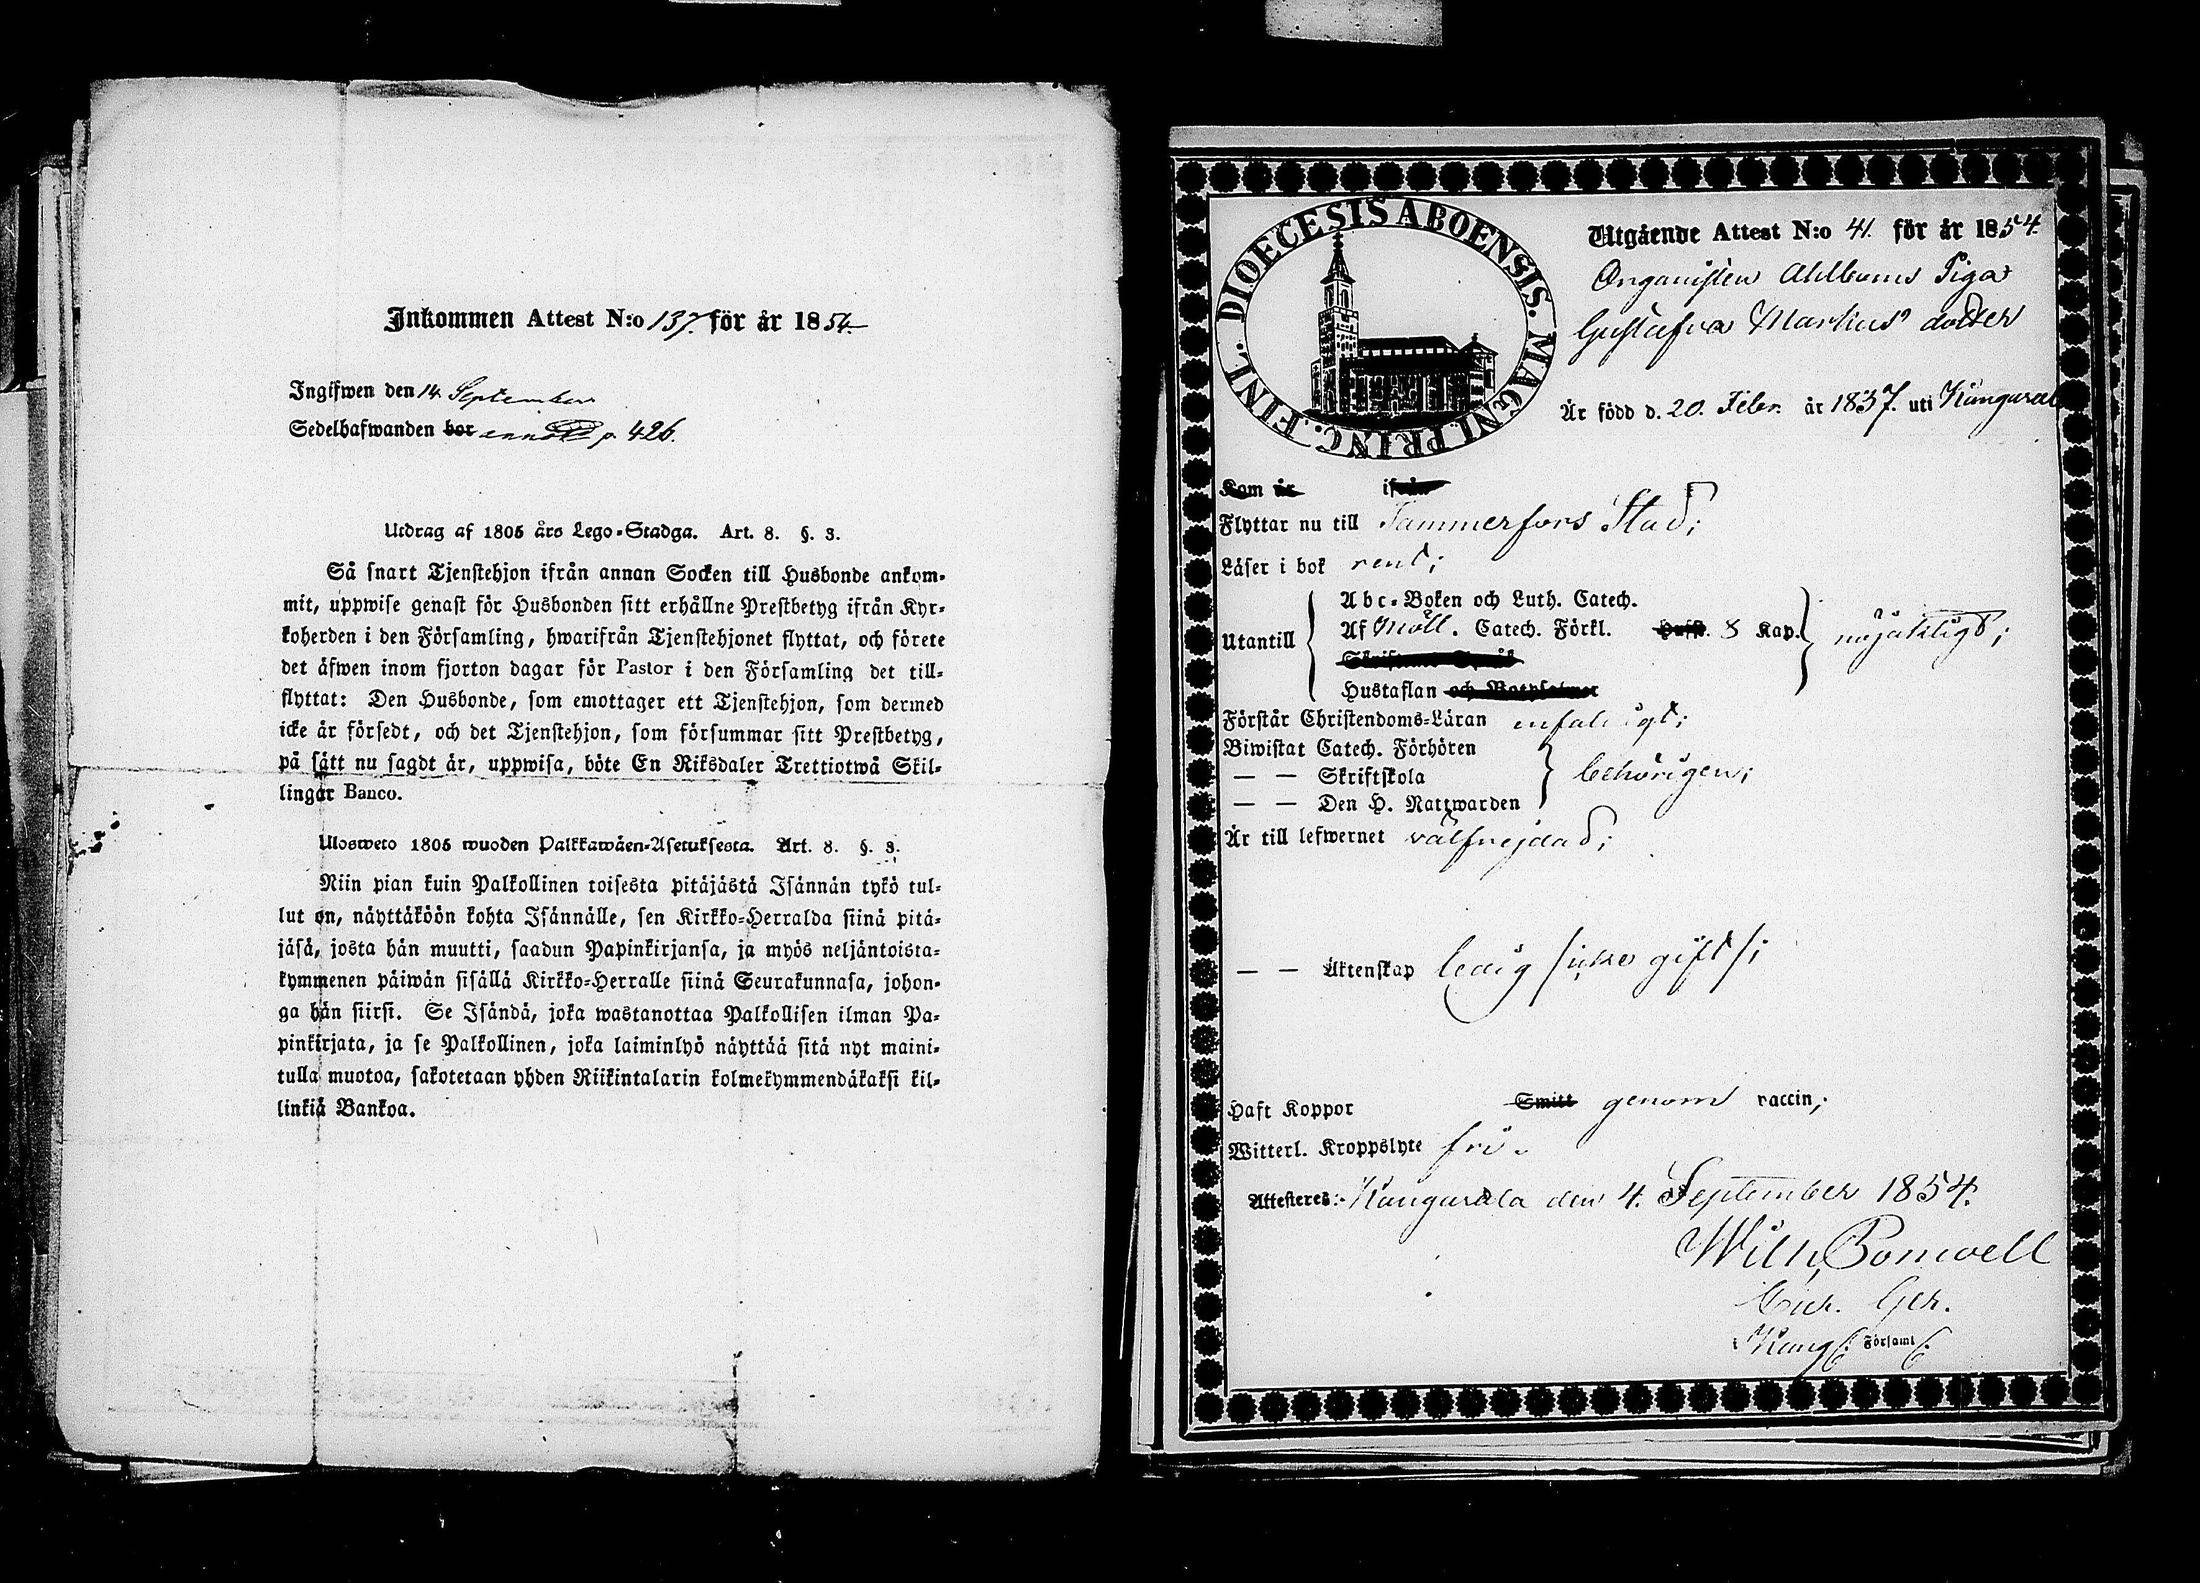 Inkommen Attest N:o 137. för år 1854.
Ingifwen den 14 September
Sedelhafwanden bor annoth p. 426.
Utdrag af 1805 års Lego-Stadga. Art. 8. §. 3.
Så snart Tjenstehjon ifrån annan Socken till Husbonde ankom-
mit, uppwise genast för Husbonden sitt erhållne Prestbetyg ifrån Kyr-
koherden i den Församling, hwarifrån Tjenstehjonet flyttat, och förete
det äfwen inom fjorton dagar för Pastor i den Församling det till-
flyttat: Den Husbonde, som emottager ett Tjenstehjon, som dermed
icke är försedt, och det Tjenstehjon, som försummar sitt Prestbetyg,
på sätt nu sagdt är, uppwisa, böte En Riksdaler Trettiotwå Skil-
lingar Banco.
Ulosweto 1805 wuoden Palkkawäen-Asetuksesta. Art. 8. §. 3.
Niin pian kuin Palkollinen toisesta pitäjästä Isännän tykö tul-
lut on, näyttäköön kohta Isännälle, sen Kirkko-Herralda siinä pitä-
jäsä, josta hän muutti, saadun Papinkirjansa, ja myös neljäntoista-
kymmenen päiwän sisällä Kirkko-Herralle siinä Seurakunnasa, johon-
ga hän siirsi. Se Isändä, joka wastanottaa Palkollisen ilman Pa-
pinkirjata, ja se Palkollinen, joka laiminlyö näyttää sitä nyt maini-
tulla muotoa, sakotetaan yhden Riikintalarin kolmekymmendäkaksi kil-
linkiä Bankoa.
DIOECESIS ABOENSIS. MAGNI. PRINC. FINL.
Utgående Attest N:o 41. för år 1854.
Organisten Ahlboms Piga
Gustafva Markus dotter
Är född d. 20. Febr. år 1837. uti Kangasal
Kom år ifrån
Flyttar nu till Tammerfors Stad;
Läser i bok rent;
Utantill
Abc-Boken och Luth. Catech.
Af Möll. Catech. Förkl. 8 Kap. nöjaktigt;
Hustaflan och Botpsalmer
Förstår Christendoms-Läran enfaldigt;
Biwistat Catech. Förhören
— — Skriftskola behörigen;
— — Den H. Nattwarden
Är till lefwernet välfrejdad;
— — Äktenskap ledig /icke gift/;
Haft Koppor Smitt genom vaccin;
Witterl. Kroppslyte fri.
Attesteras: Kangasala den 4. September 1854.
Wilh. Bonwell
i Kang. Församl.